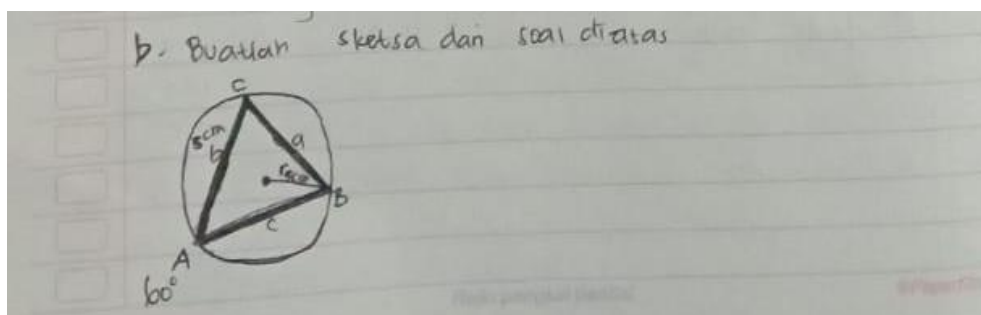 b. Buatlah sketsa dari soal diatas
C
8 cm
b
a
B
c
A
60°